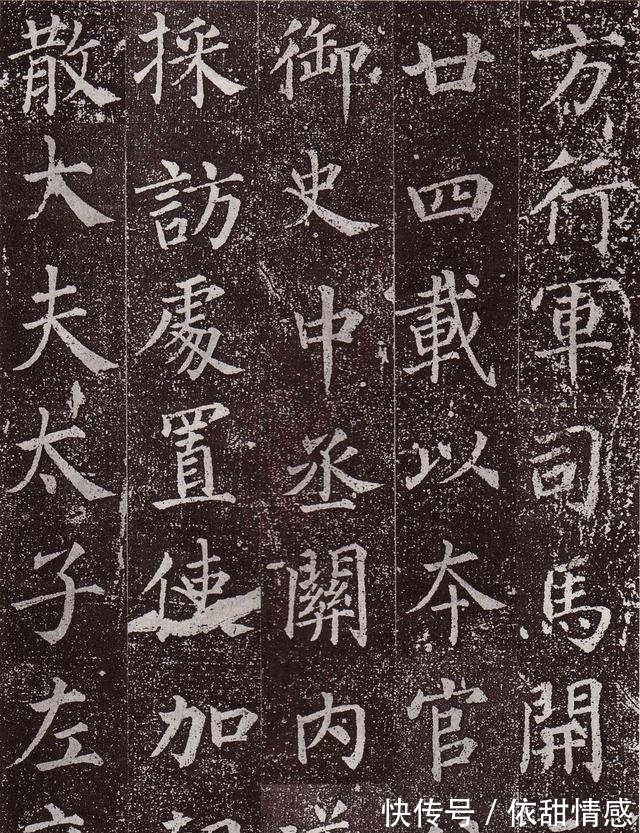 方行軍司馬開
廿四載以本官
御史中丞關内
採訪處置使加
散大夫太子左
快传号 / 依甜情感